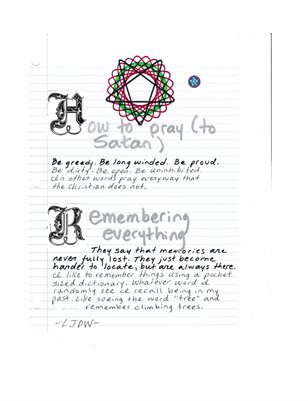 How to pray (to
Satan)
Be greedy. Be long winded. Be proud.
Be dirty. Be open. Be uninhibited.
In other words pray everyway that
the Christian does not.
Remembering
everything
They say that memories are
never fully lost. They just become
harder to locate, but are always there.
I like to remember things using a pocket
sized dictionary. Whatever word I
randomly see I recall being in my
past. Like seeing the word "tree" and
remember climbing trees.
-LJPW-